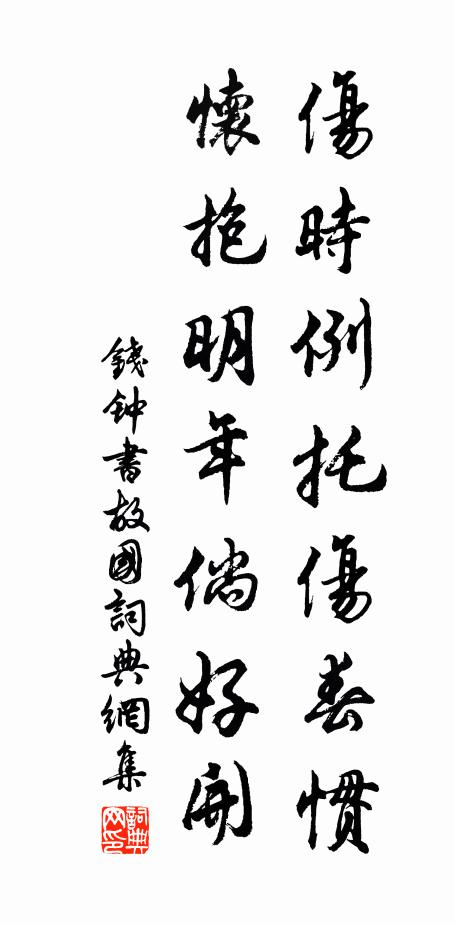 傷時例托傷春慣
懷抱明年倘好開
錢鍾書故國詞典網集
詞典網印